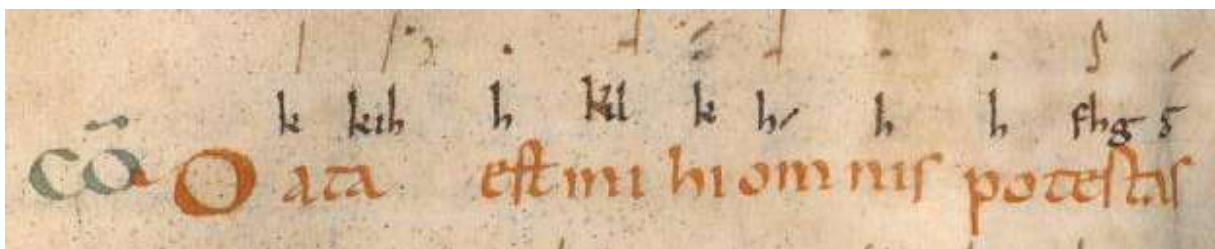 k kih h k h h h fhg g
CO Data est mi hi om nis potestas